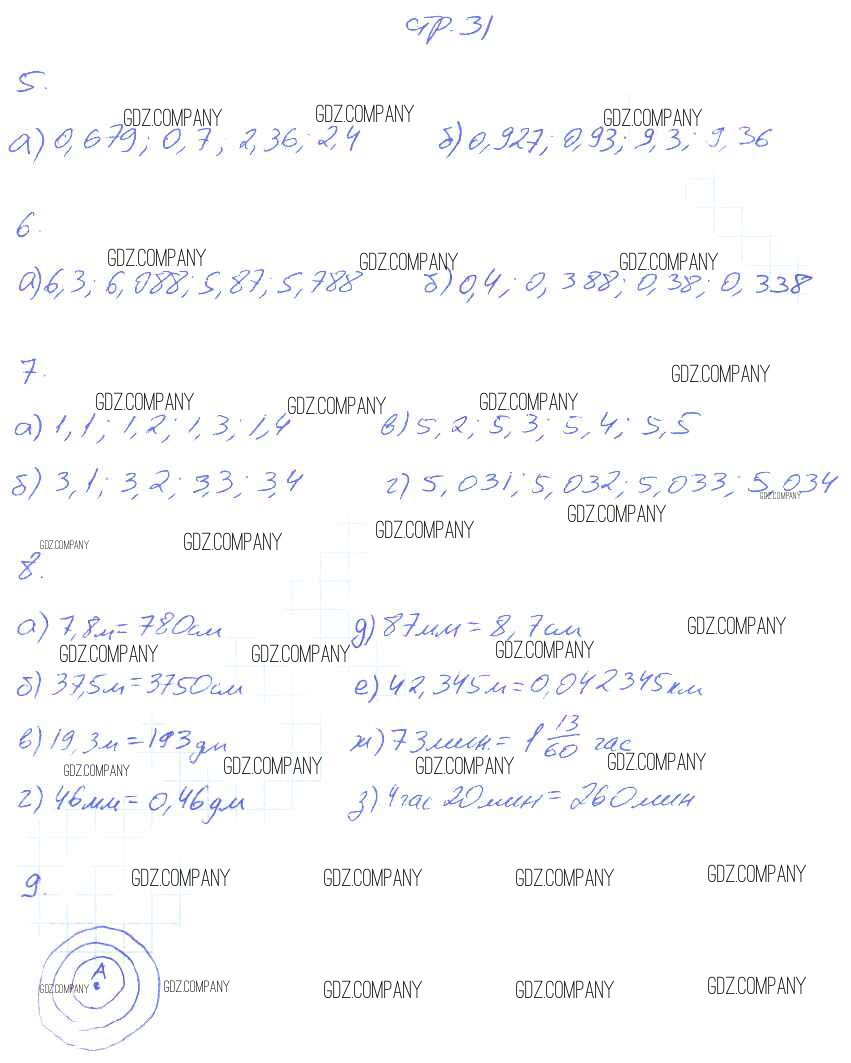 стр. 31
5.
GDZ.COMPANY GDZ.COMPANY GDZ.COMPANY
а) 0,679; 0,7; 2,36; 2,4 б) 0,927; 0,93; 9,3; 9,36
6.
GDZ.COMPANY GDZ.COMPANY GDZ.COMPANY
а) 6,3; 6,088; 5,87; 5,788 б) 0,4; 0,388; 0,38; 0,338
7.
GDZ.COMPANY
GDZ.COMPANY GDZ.COMPANY GDZ.COMPANY
а) 1,1; 1,2; 1,3; 1,4 в) 5,2; 5,3; 5,4; 5,5
б) 3,1; 3,2; 3,3; 3,4 г) 5,031; 5,032; 5,033; 5,034
GDZ.COMPANY
GDZ.COMPANY GDZ.COMPANY GDZ.COMPANY GDZ.COMPANY
8.
а) 7,8м = 780см д) 87мм = 8,7см GDZ.COMPANY
GDZ.COMPANY GDZ.COMPANY GDZ.COMPANY
б) 37,5м = 3750см е) 42,345м = 0,042345км
в) 19,3м = 193дм ж) 73мин. = 1 13/60 час
GDZ.COMPANY GDZ.COMPANY GDZ.COMPANY GDZ.COMPANY
г) 46мм = 0,46дм з) 4час 20мин = 260мин
GDZ.COMPANY GDZ.COMPANY GDZ.COMPANY GDZ.COMPANY
9.
А
GDZ.COMPANY GDZ.COMPANY GDZ.COMPANY GDZ.COMPANY GDZ.COMPANY